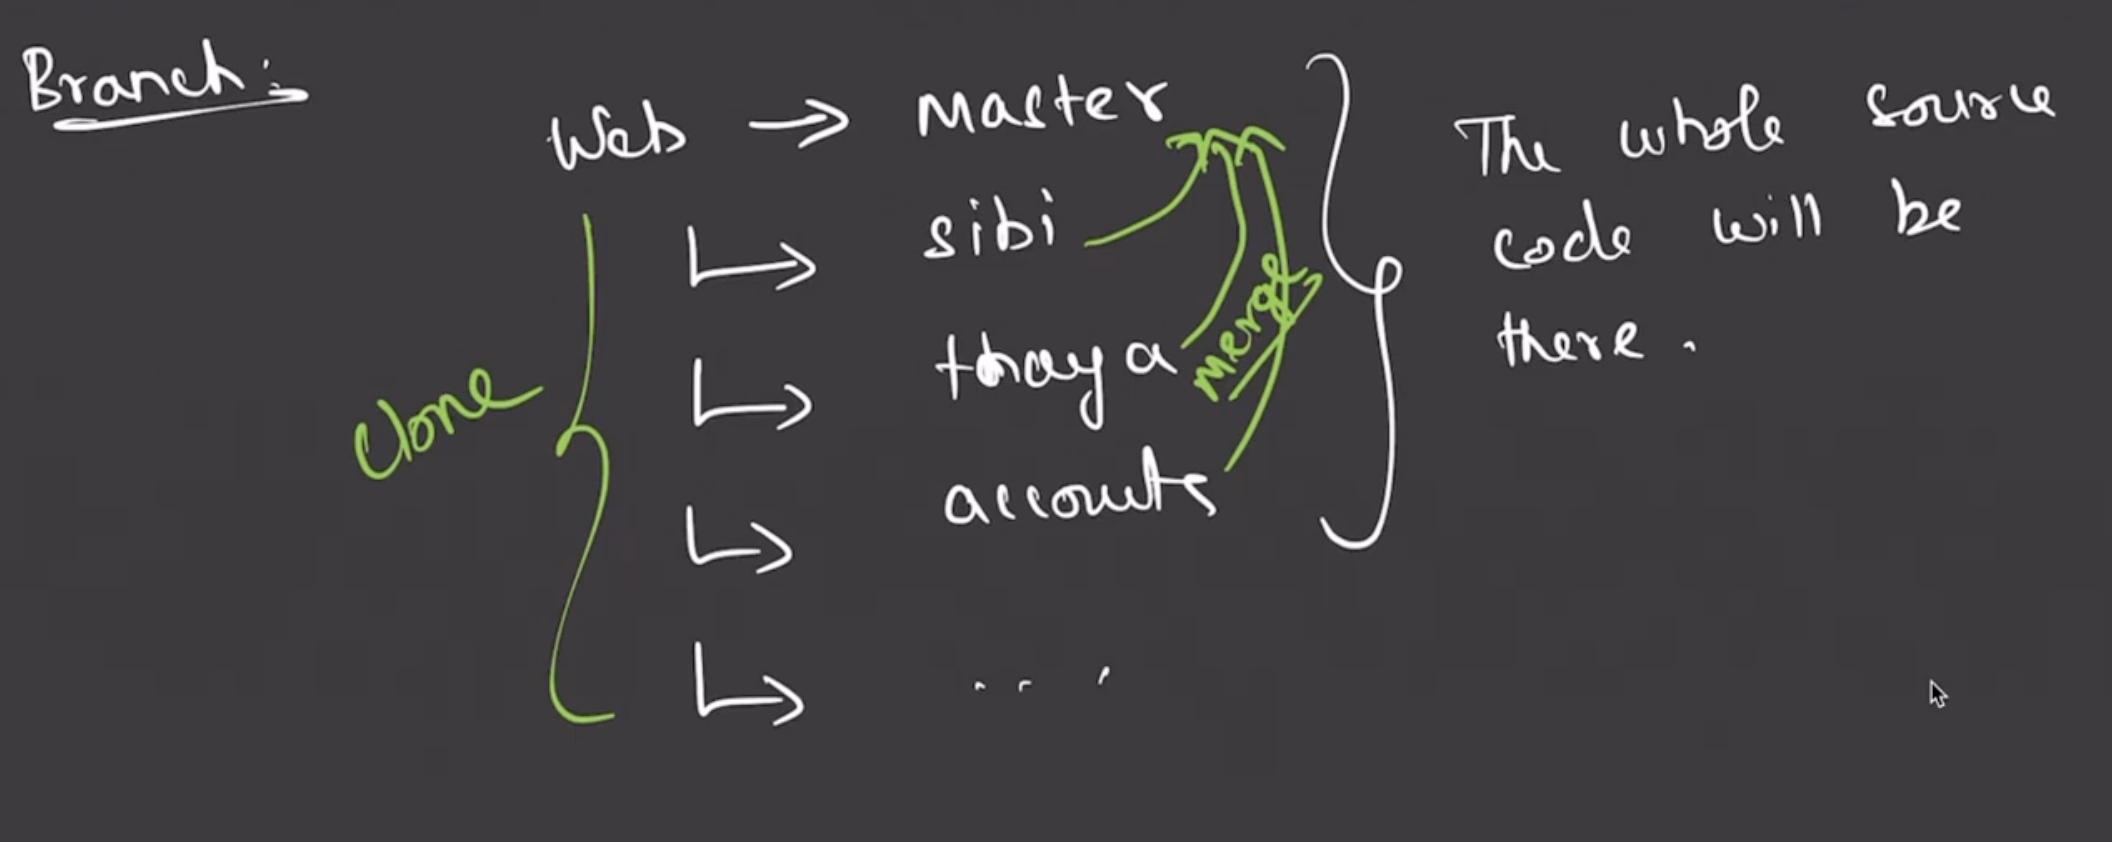 Branch:
Web → Master
↳ sibi
↳ thaya
↳ accounts
↳ ...
clone
Merge
The whole source
code will be
there.